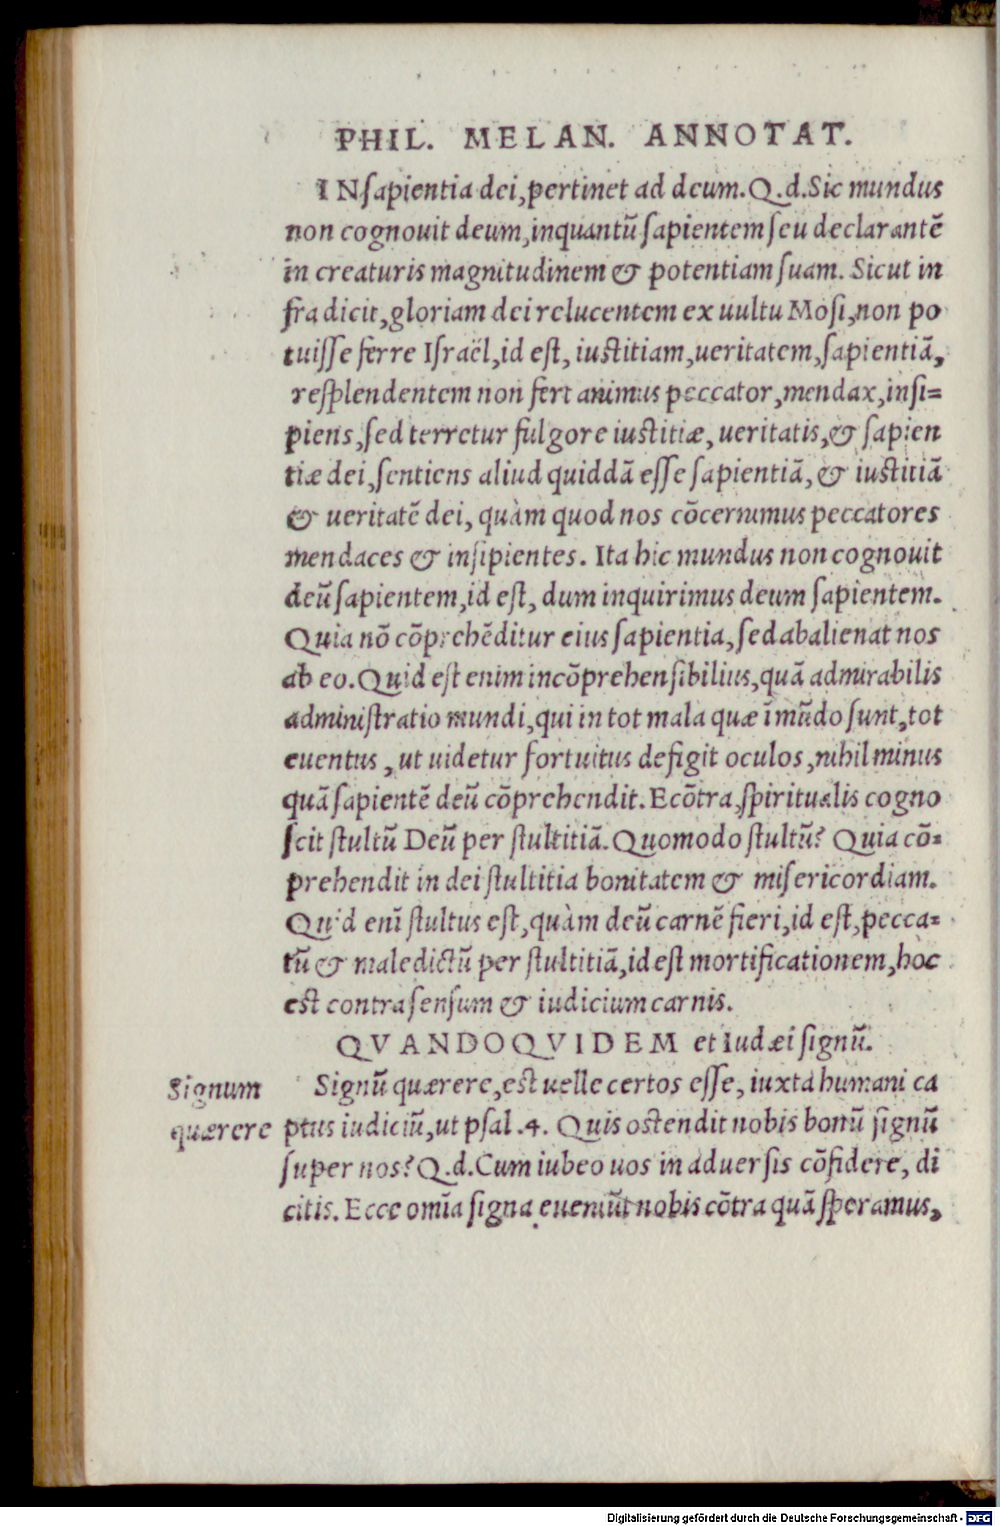 PHIL. MELAN. ANNOTAT.
IN sapientia dei, pertinet ad deum. Q.d. Sic mundus
non cognouit deum, inquantũ sapientem seu declarantẽ
in creaturis magnitudinem & potentiam suam. Sicut in
fra dicit, gloriam dei relucentem ex uultu Mosi, non po
tuisse ferre Israël, id est, iustitiam, ueritatem, sapientiã,
resplendentem non fert animus peccator, mendax, insi=
piens, sed terretur fulgore iustitiæ, ueritatis, & sapien
tiæ dei, sentiens aliud quiddã esse sapientiã, & iustitiã
& ueritatẽ dei, quàm quod nos cõcernimus peccatores
mendaces & insipientes. Ita hic mundus non cognouit
deũ sapientem, id est, dum inquirimus deum sapientem.
Quia nõ cõprehẽditur eius sapientia, sed abalienat nos
ab eo. Quid est enim incõprehensibilius, quã admirabilis
administratio mundi, qui in tot mala quæ ĩ mũdo sunt, tot
euentus, ut uidetur fortuitus defigit oculos, nihil minus
quã sapientẽ deũ cõprehendit. Ecõtra, spiritualis cogno
scit stultũ Deũ per stultitiã. Quomodo stultũ? Quia cõ=
prehendit in dei stultitia bonitatem & misericordiam.
Quid enĩ stultus est, quàm deũ carnẽ fieri, id est, pecca=
tũ & maledictũ per stultitiã, id est mortificationem, hoc
est contra sensum & iudicium carnis.
QVANDOQVIDEM et Iudæi signũ.
Signum
quærere
Signũ quærere, est uelle certos esse, iuxta humani ca
ptus iudiciũ, ut psal. 4. Quis ostendit nobis bonũ signũ
super nos? Q.d. Cum iubeo uos in aduersis cõfidere, di
citis. Ecce omĩa signa eueniũt nobis cõtra quã speramus,
Digitalisierung gefördert durch die Deutsche Forschungsgemeinschaft - DFG